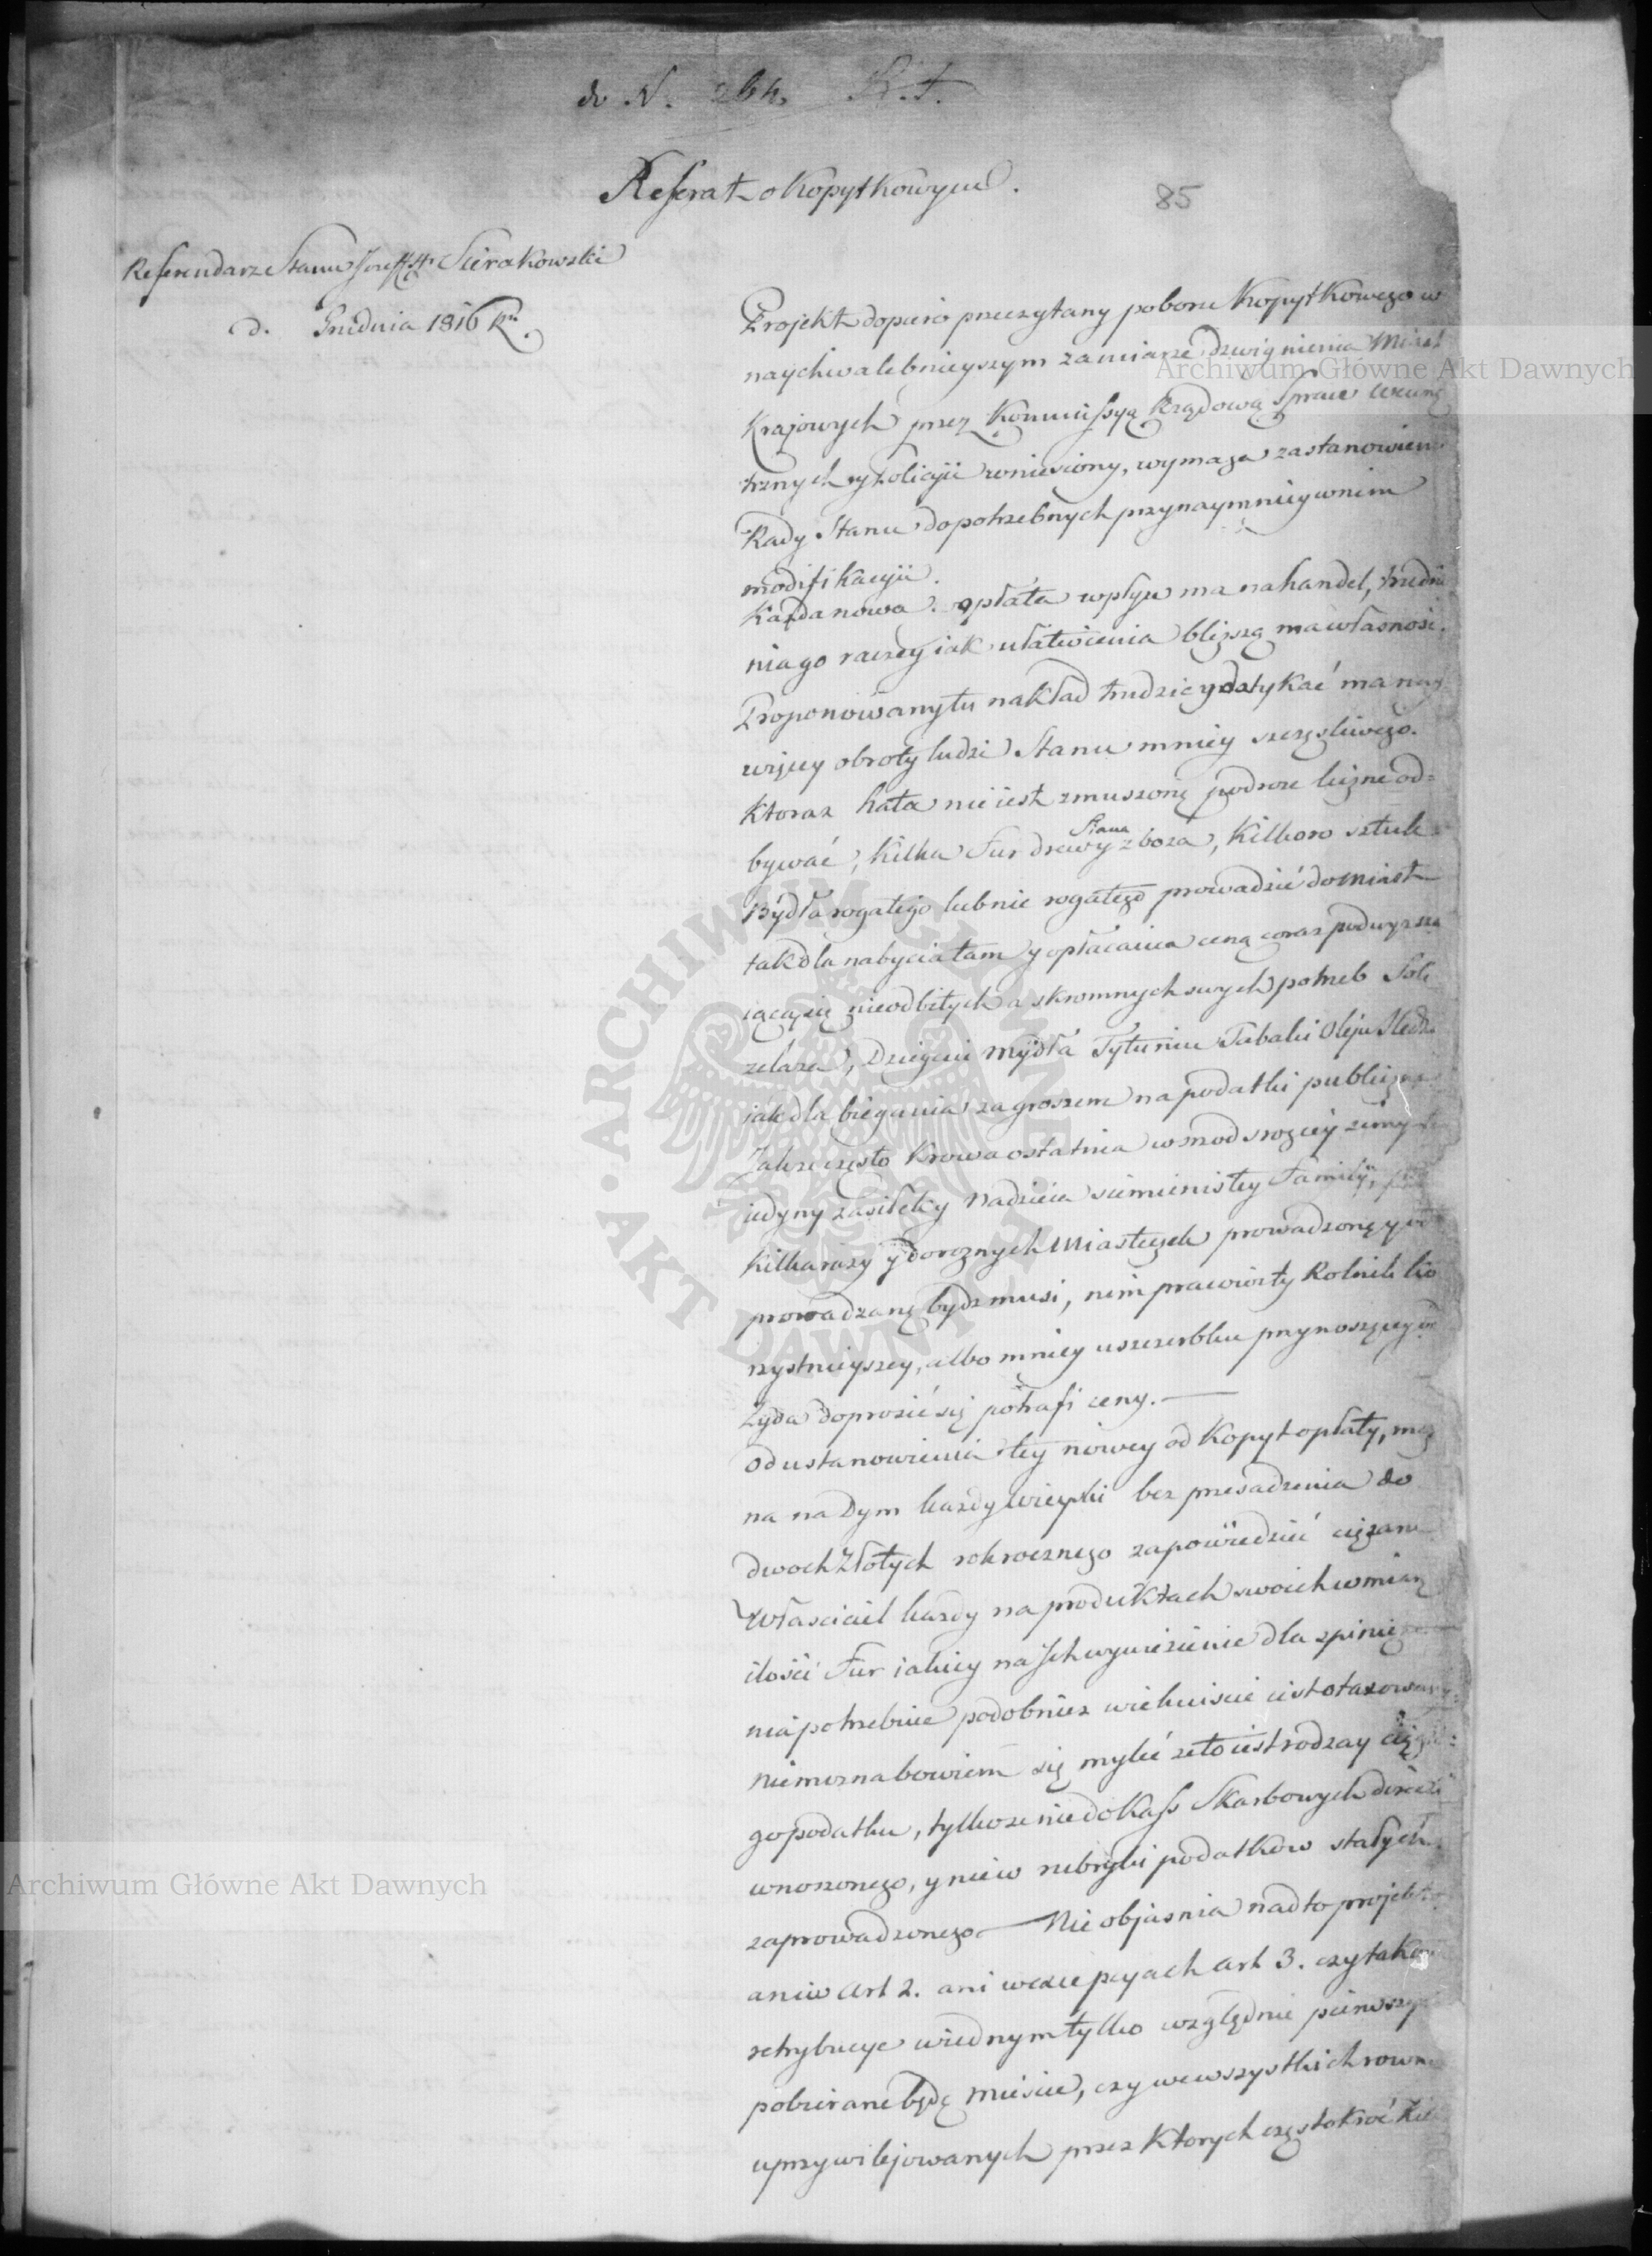 do N. 264. R. S.
Referat o Kopytkowym.
85
Referendarz Stanu Jozeff Hr Sierakowski
d. Grudnia 1816 R.
Projekt dopiero przeczytany poboru Kopytkowego w
naychwalebnieyszym zamiarze dzwignienia Miast
Krajowych przez Kommissyą Rządową Spraw Wewnę
trznych y Policyi wniesiony, wymaga zastanowien
Rady Stanu do potrzebnych przynaymniey w nim
modifikacyi.
Każda nowa opłata wpływ ma na handel, trudnie
nia go raczey iak ułatwienia bliższą ma własnosć.
Proponowany tu nakład trudzić y dotykać ma nay
więcey obroty ludzi Stanu mniey szczęsliwego.
Ktoraz hata nie iest zmuszoną podroze liczne od=
bywać, kilka Fur drewy Siana zboża, kilkoro sztuk
Bydła rogatego lub nie rogatego prowadzić do Miast
tak dla nabycia tam y opłacania ceną coraz podwyzsza
iącą się nieodbitych a skromnych swych potrzeb Soli
zelaza, Dziegciu Mydła Tytuniu Tabaki Oleju Sledzi
iak dla biegania za groszem na podatki publiczne
Jakze często Krowa ostatnia wsrzod srogiey zimy
iedyny zasiłek y Nadzieia ziemienistey Familii,
kilka razy y do roznych Miasteczek prowadzoną y od
prowadzaną bydz musi, nim prawowity Rolnik ko
rzystnieyszey, albo mniey uszczerbku przynoszącey od
Zyda doprosić się potrafi ceny.
Od ustanowienia tey nowey od Kopyt opłaty, moz
na na Dym kazdy Wieyski bez przesadzenia do
dwoch Złotych rokrocznego zapowiedzieć ciężaru
Własciciel kazdy na produktach swoich w miarę
ilości Fur iakiey na Ich wywiezienie dla spienię
nia potrzebuie podobniez wiekuiscie iest otaxowany:
niemozna bowiem się mylić ze to iest rodzay ciągłe=
go podatku, tylko ze nie do Kass Skarbowych
wnoszonego, y nie w rubryki podatkow stałych
zaprowadzonego — Nie objasnia nadto projekt
ani w Art 2. ani w excepcyach Art 3. czy takowe
retrybucye w iednym tylko względnie pierwszym
pobierane będą Miescie, czy we wszystkich rowno
uprzywilejowanych przez ktorych częstokroć